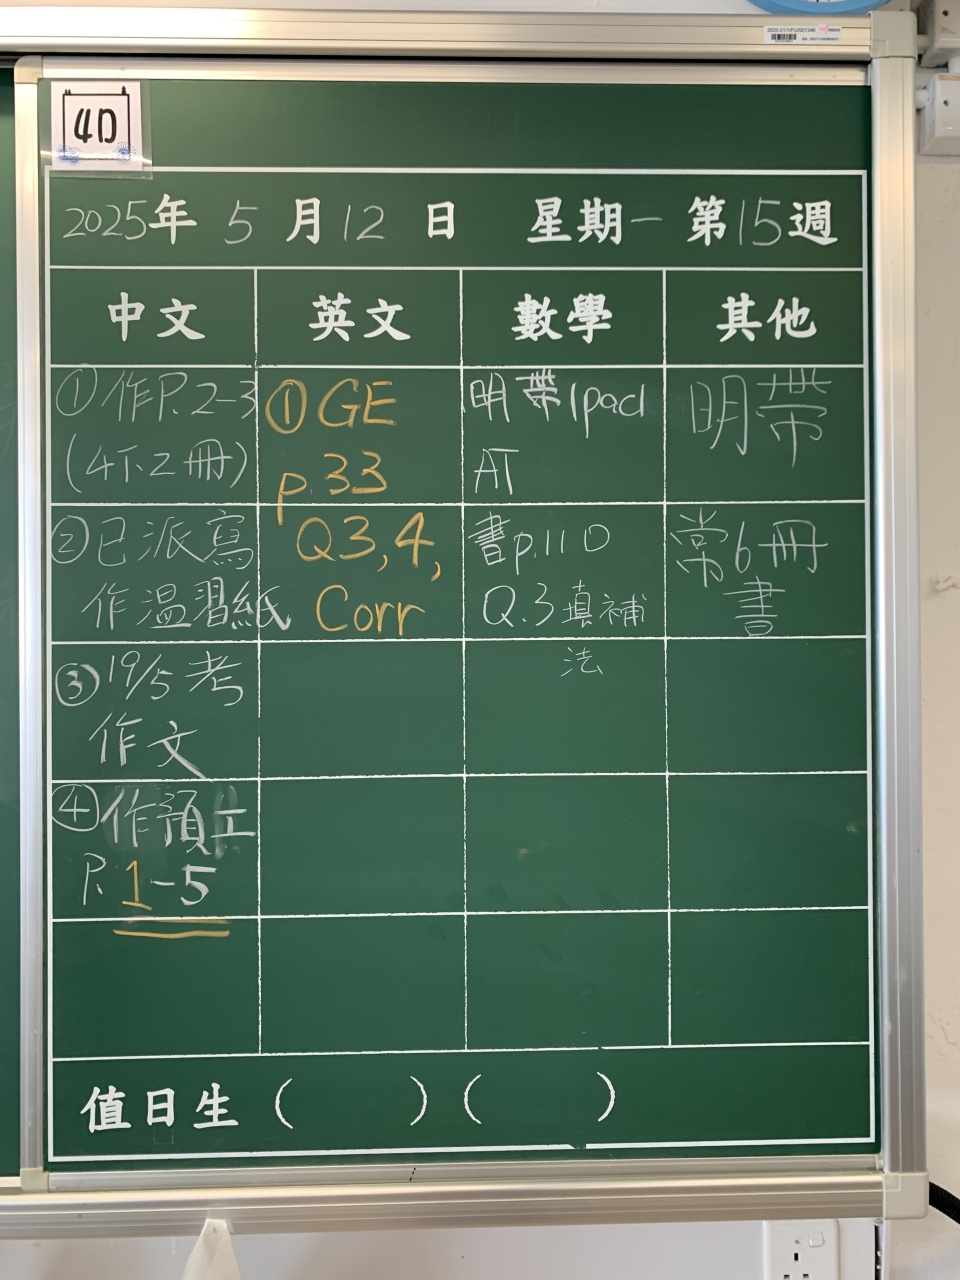 4D
2025年 5 月 12 日 星期一 第15週
中文 英文 數學 其他
①作P.2-3
(4下2冊)
②已派寫
作溫習紙
③19/5考
作文
④作預工
P.1-5
①GE
p.33
Q3,4,
Corr
明帶Ipad
AT
書p.110
Q.3填補
法
明帶
常6冊
書
值日生 ( ) ( )